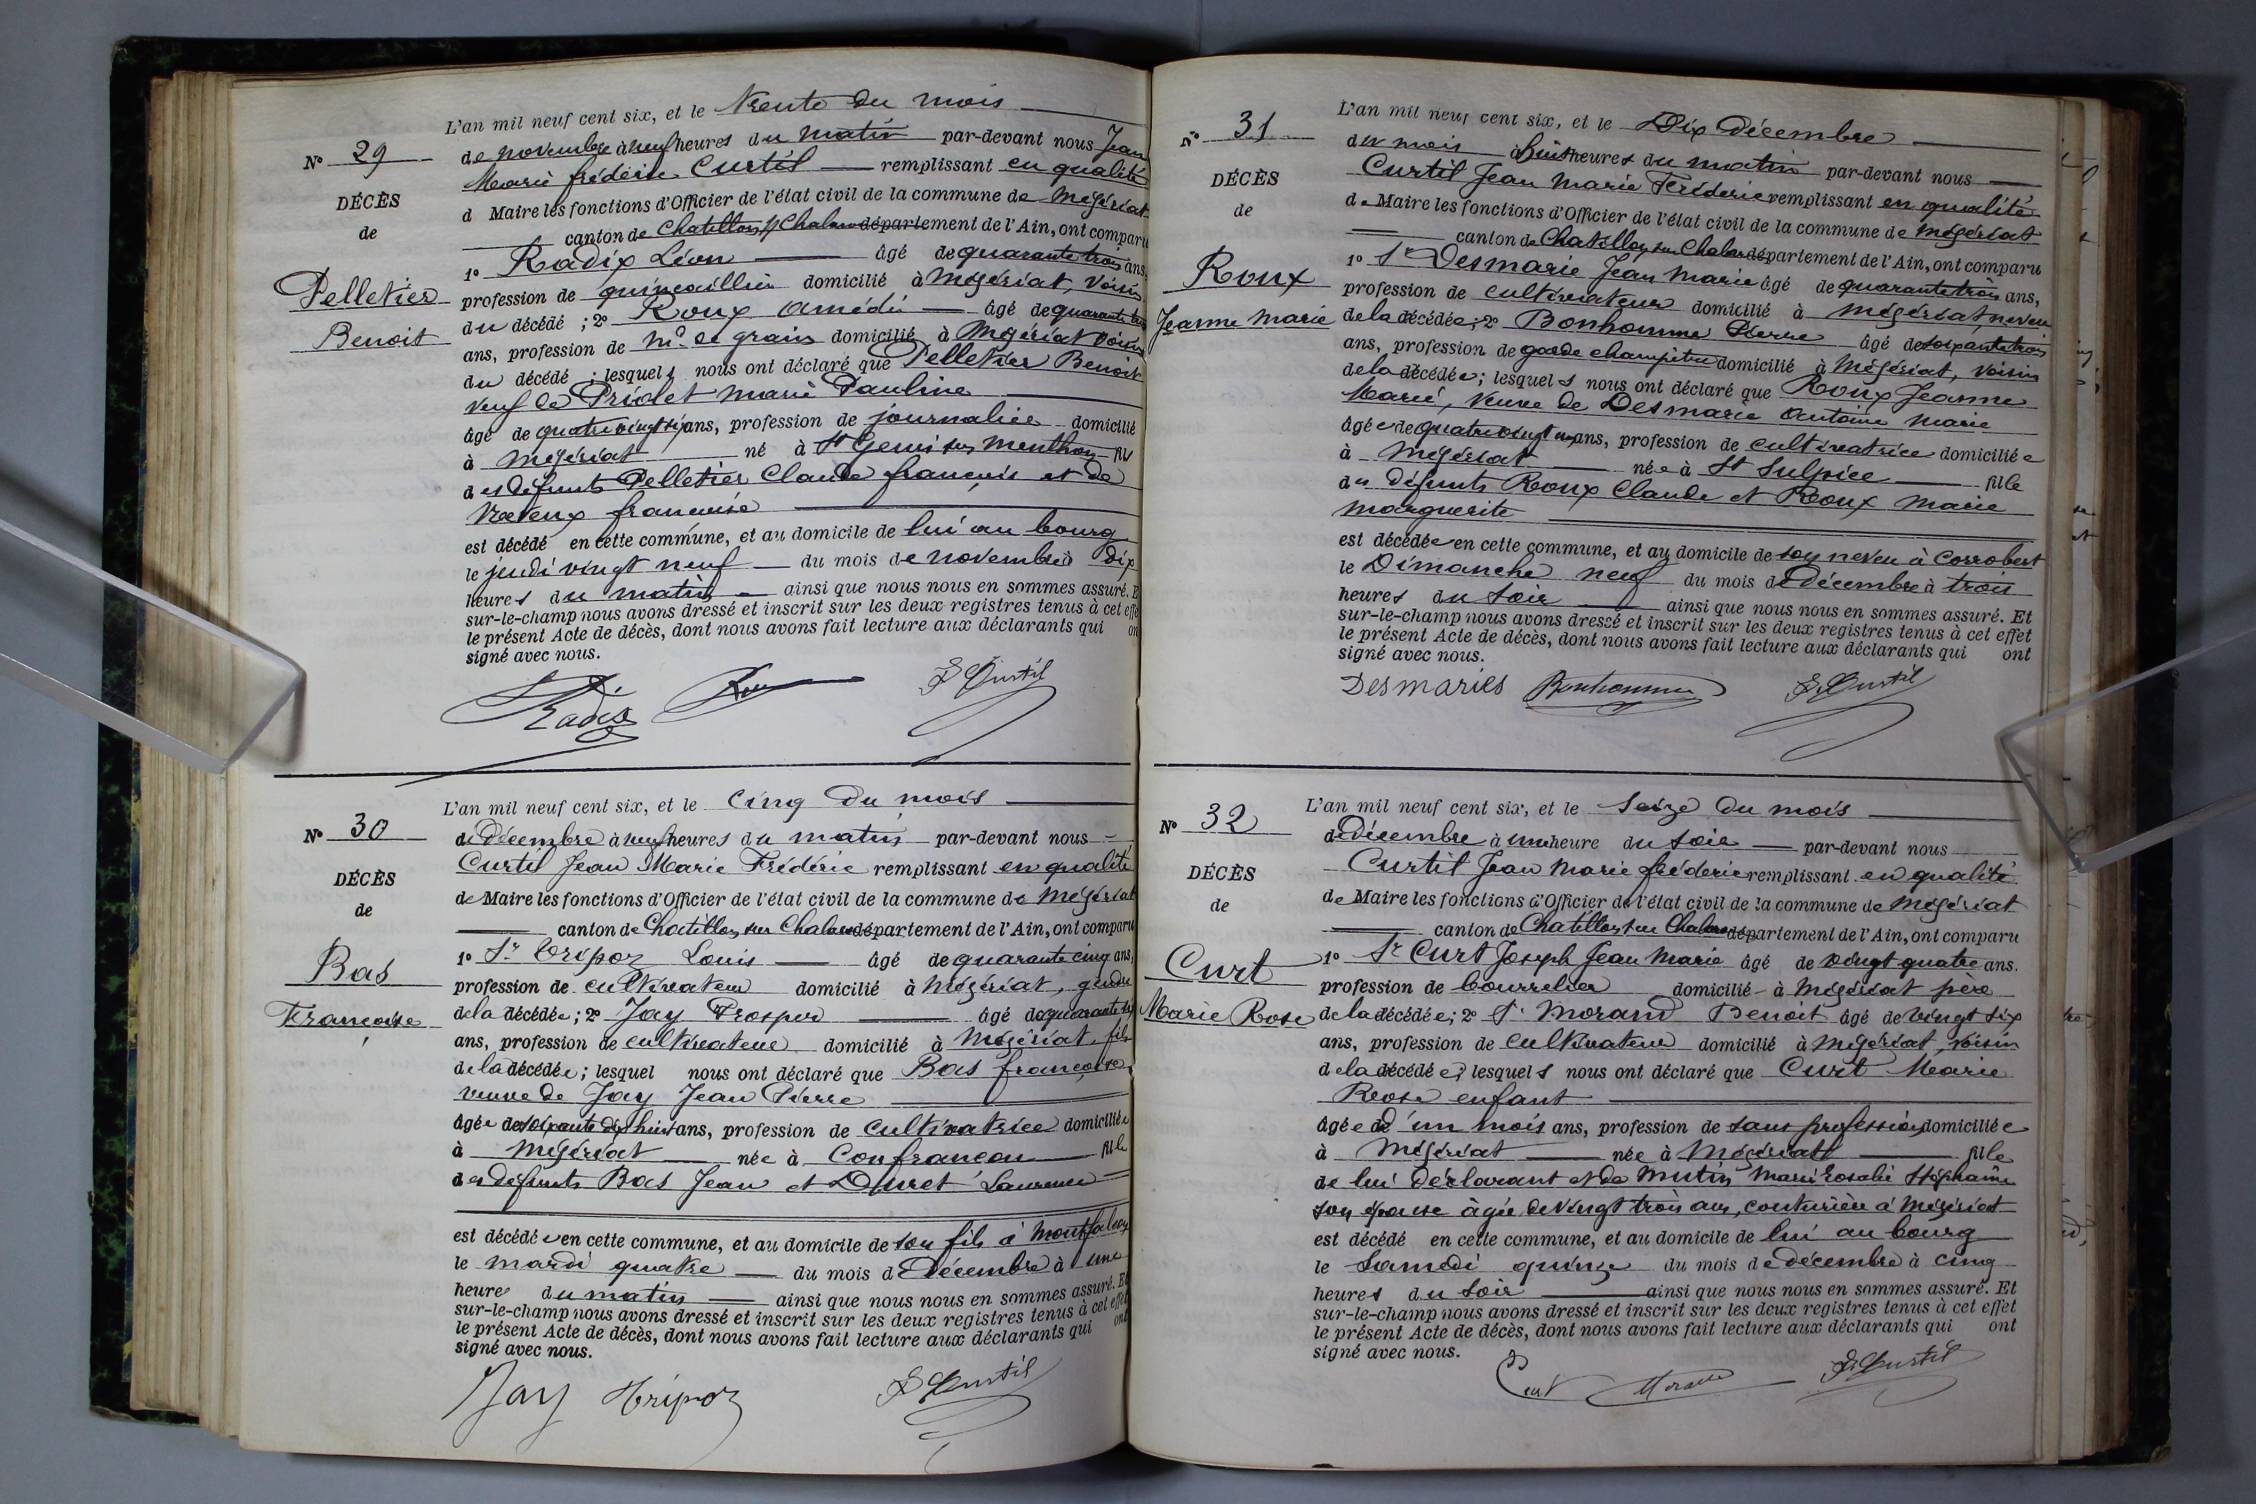 L'an mil neuf cent six, et le Trente du mois
N° 29
de novembre à neuf heures du matin par-devant nous Jean
Marie frédéric Curtil remplissant en qualité
DÉCÈS
d Maire les fonctions d'Officier de l'état civil de la commune de Mézériat
de
canton de Chatillon s/ Chalar département de l'Ain, ont comparu
1° Radix Léon âgé de quarante trois ans,
Pelletier
profession de quincaillier domicilié à Mézériat, voisin
Benoit
du décédé ; 2° Roux Amédé âgé de quarante
ans, profession de md. de grains domicilié à Mézériat voisin
du décédé ; lesquels nous ont déclaré que Pelletier Benoit
veuf de Priolet Marie Pauline
âgé de quatre vingt six ans, profession de journalier domicilié
à Mézériat né à St Genis sur Menthon fils
des défunts Pelletier Claude françois et de
françoise
est décédé en cette commune, et au domicile de lui au bourg
le jeudi vingt neuf du mois de novembre à dix
heures du matin ainsi que nous nous en sommes assuré. Et
sur-le-champ nous avons dressé et inscrit sur les deux registres tenus à cet effet
le présent Acte de décès, dont nous avons fait lecture aux déclarants qui ont
signé avec nous.
L. Radix Roux F Curtil
L'an mil neuf cent six, et le cinq du mois
N° 30
de Décembre à neuf heures du matin par-devant nous
Curtil Jean Marie Frédéric remplissant en qualité
DÉCÈS
de Maire les fonctions d'Officier de l'état civil de la commune de Mézériat
de
canton de Chatillon sur Chalar département de l'Ain, ont comparu
1° Sr Tripoz Louis âgé de quarante cinq ans,
Bas
profession de cultivateur domicilié à Mézériat, gendre
Françoise
de la décédée ; 2° Jay Prosper âgé de quarante
ans, profession de cultivateur domicilié à Mézériat, fils
de la décédée ; lesquel nous ont déclaré que Bas françoise
veuve de Jay Jean Pierre
âgée de soixante dix huit ans, profession de cultivatrice domiciliée
à Mézériat née à Confrançon fille
des défunts Bas Jean et Duret Laurence
est décédée en cette commune, et au domicile de son fils à Montfalcon
le mardi quatre du mois d Décembre à une
heure du matin ainsi que nous nous en sommes assuré. Et
sur-le-champ nous avons dressé et inscrit sur les deux registres tenus à cet effet
le présent Acte de décès, dont nous avons fait lecture aux déclarants qui ont
signé avec nous.
Jay Tripoz F Curtil
L'an mil neuf cent six, et le Dix Décembre
N° 31
du mois à huit heures du matin par-devant nous
DÉCÈS
Curtil Jean Marie Fréderic remplissant en qualité
de
de Maire les fonctions d'Officier de l'état civil de la commune de Mézériat
canton de Chatillon sur Chalar département de l'Ain, ont comparu
Roux
1° Sr Desmarie Jean Marie âgé de quarante trois ans,
profession de cultivateur domicilié à Mézériat, neveu
Jeanne Marie
de la décédée ; 2° Bonhomme Pierre âgé de soixante trois
ans, profession de garde champêtre domicilié à Mézériat, voisin
de la décédée ; lesquels nous ont déclaré que Roux Jeanne
Marie, veuve de Desmarie Antoine Marie
âgée de quatre vingt ans, profession de cultivatrice domiciliée
à Mézériat née à St Sulpice fille
des défunts Roux Claude et Roux Marie
Marguerite
est décédée en cette commune, et au domicile de son neveu à Corrobert
le Dimanche neuf du mois de Décembre à trois
heures du soir ainsi que nous nous en sommes assuré. Et
sur-le-champ nous avons dressé et inscrit sur les deux registres tenus à cet effet
le présent Acte de décès, dont nous avons fait lecture aux déclarants qui ont
signé avec nous.
Desmaries Bonhomme F Curtil
L'an mil neuf cent six, et le Seize du mois
N° 32
de Décembre à une heure du soir par-devant nous
DÉCÈS
Curtil Jean Marie fréderic remplissant en qualité
de
de Maire les fonctions d'Officier de l'état civil de la commune de Mézériat
canton de Chatillon sur Chalar département de l'Ain, ont comparu
Curt
1° Sr Curt Joseph Jean Marie âgé de vingt quatre ans.
profession de bourrelier domicilié à Mézériat père
Marie Rose
de la décédée ; 2° Sr Morand Benoit âgé de vingt six
ans, profession de cultivateur domicilié à Mézériat, voisin
de la décédée ; lesquels nous ont déclaré que Curt Marie
Rose enfant
âgée d'un mois ans, profession de sans profession domiciliée
à Mézériat née à Mézériat fille
de lui déclarant et de Mutin Marie Rosalie Stéphanie
son épouse âgée de vingt trois ans, couturière à Mézériat
est décédé en cette commune, et au domicile de lui au bourg
le Samedi quinze du mois de décembre à cinq
heures du soir ainsi que nous nous en sommes assuré. Et
sur-le-champ nous avons dressé et inscrit sur les deux registres tenus à cet effet
le présent Acte de décès, dont nous avons fait lecture aux déclarants qui ont
signé avec nous.
Curt Morand F Curtil